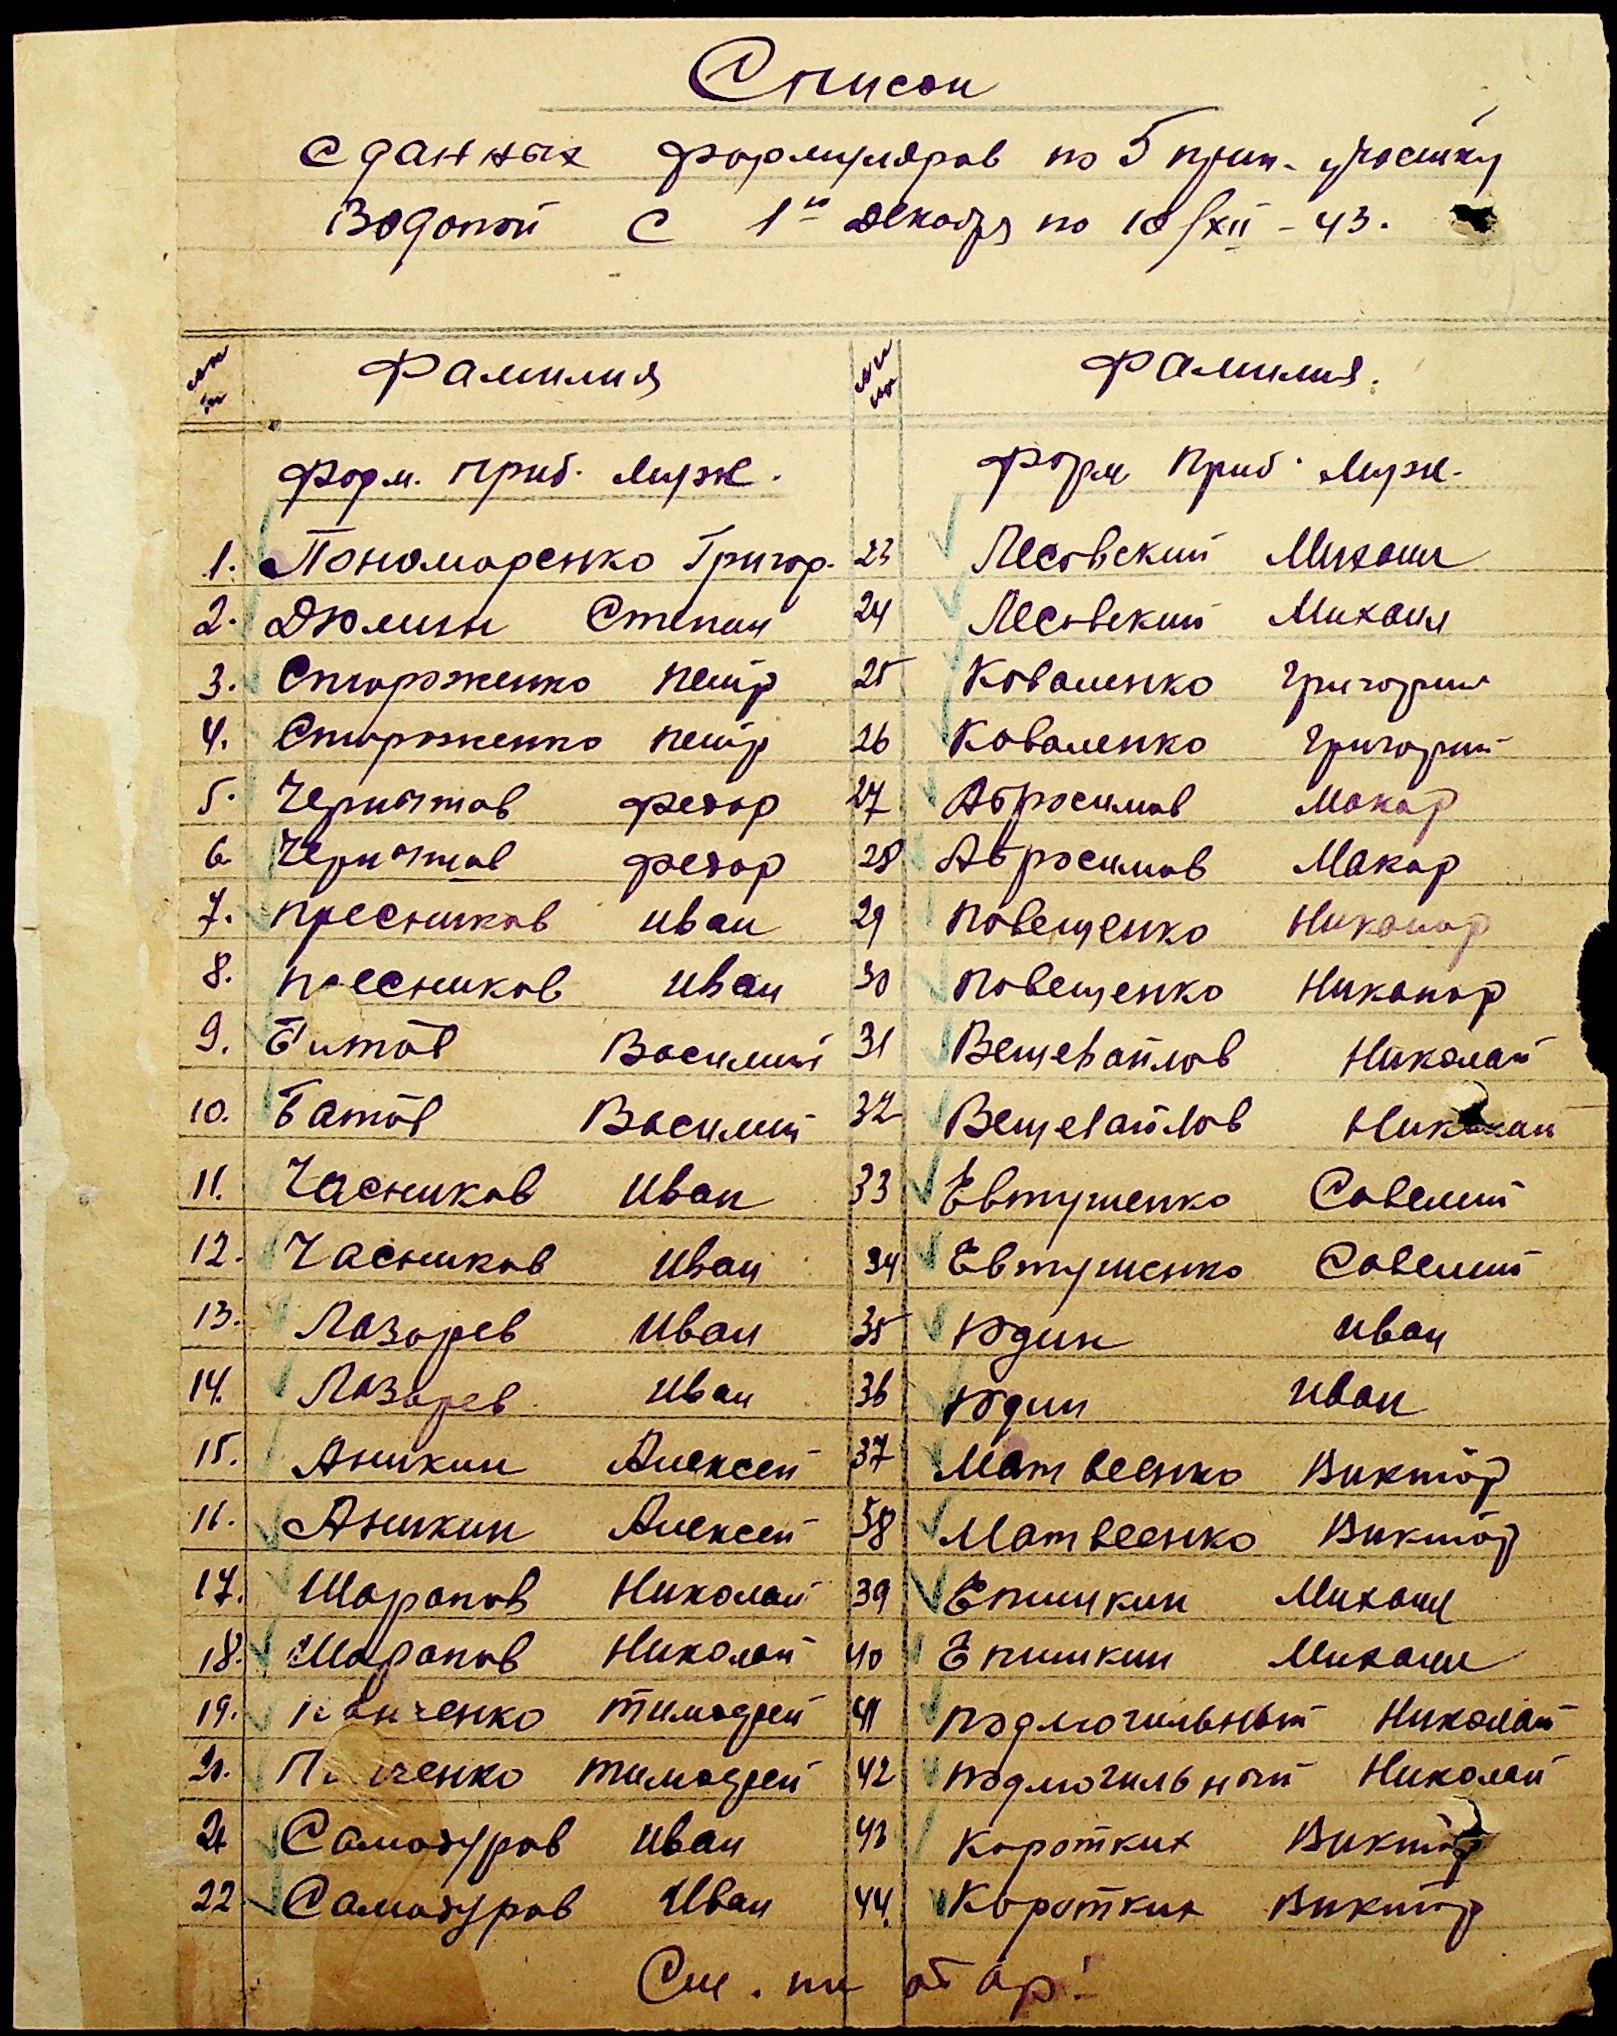 Список
сданных формуляров по 5 прик. участку
Водопой с 1го декабря по 10/XII - 43.
Фамилия
Фамилия.
Форм. приб. муж.
Форм приб. муж.
1. Пономаренко Григор.
2. Дюмин Степан
3. Стороженко Петр
4. Стороженко Петр
5. Федор
6. Федор
7. Пресняков Иван
8. Пресняков Иван
9. Батов Василий
10. Батов Василий
11. Часников Иван
12. Часников Иван
13. Лазарев Иван
14. Лазарев Иван
15. Аникин Алексей
16. Аникин Алексей
17. Шарапов Николай
18. Шарапов Николай
19. Панченко Тимофей
20. Панченко Тимофей
21 Самодуров Иван
22 Самодуров Иван
23 Лесовский Михаил
24 Лесовский Михаил
25 Коваленко Григорий
26 Коваленко Григорий
27 Абросимов Макар
28 Абросимов Макар
29 Повещенко Никанор
30 Повещенко Никанор
31 Николай
32 Николай
33 Евтушенко Савелий
34 Евтушенко Савелий
35 Юдин Иван
36 Юдин Иван
37 Матвеенко Виктор
38 Матвеенко Виктор
39 Епишкин Михаил
40 Епишкин Михаил
41 Подмогильный Николай
42 Подмогильный Николай
43 Коротких Виктор
44. Коротких Виктор
См. на обор!